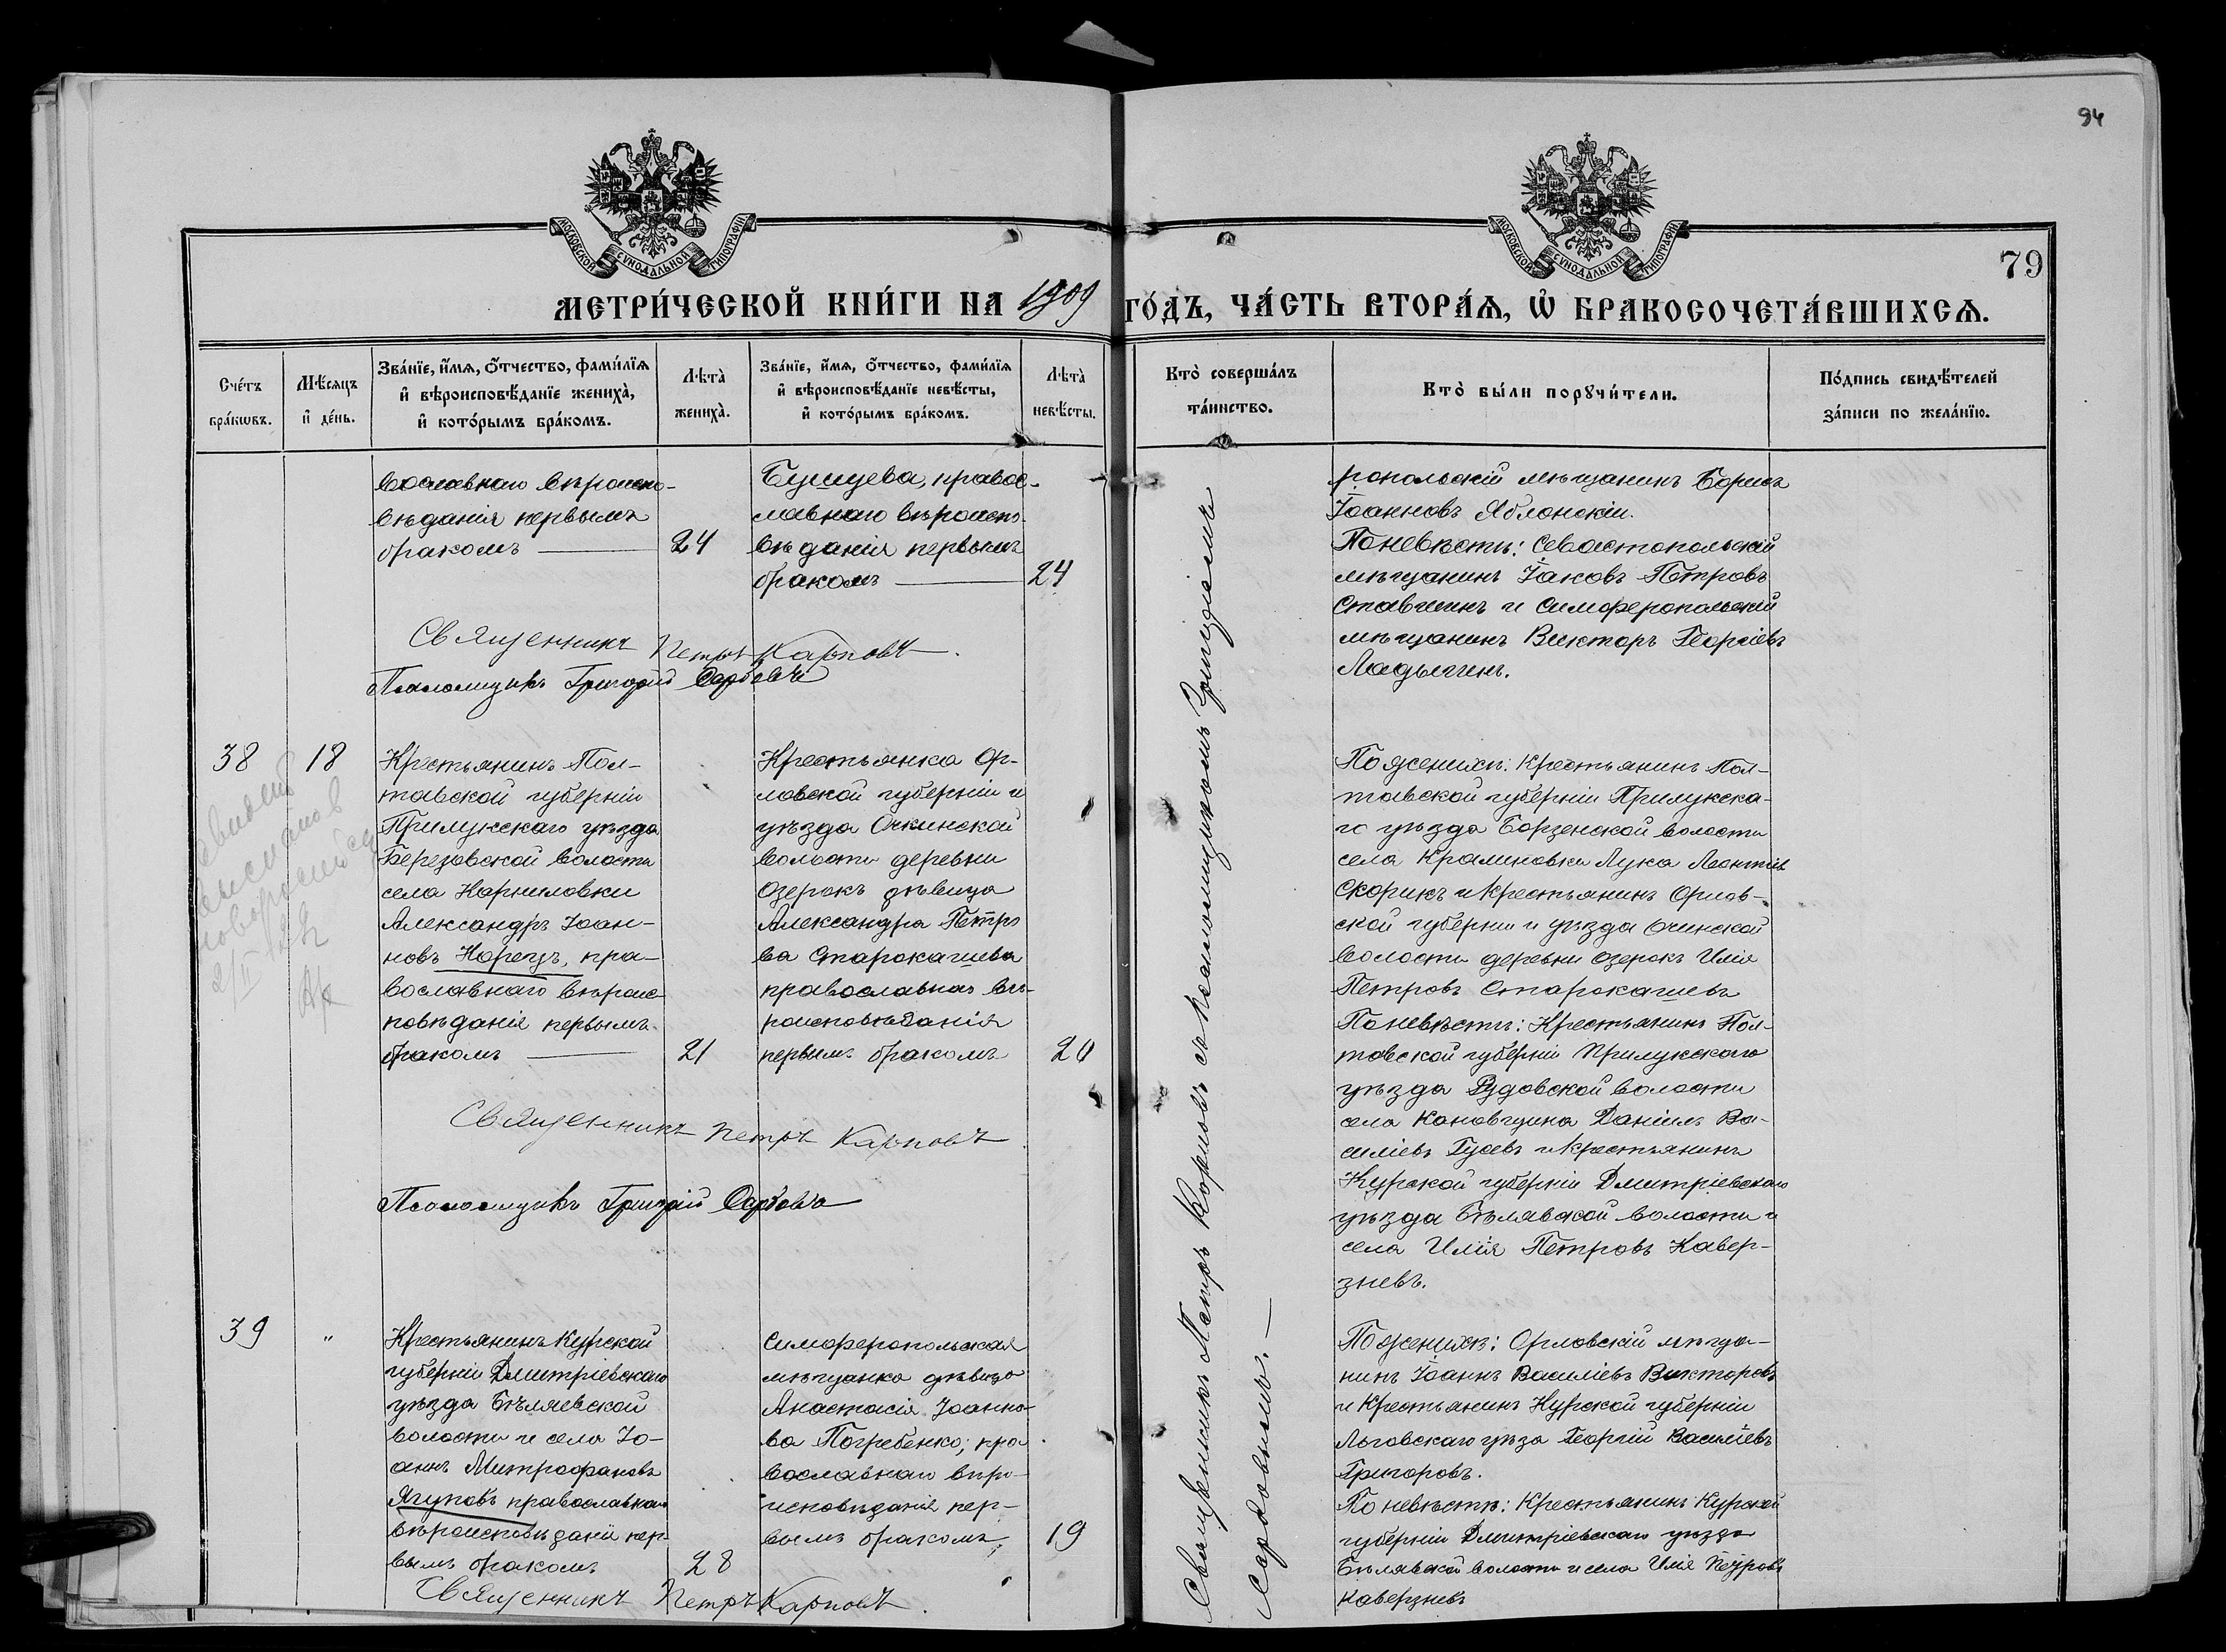 94
МОСКОВСКОЙ СУНОДАЛЬНОЙ ТИПОГРАФІИ
МОСКОВСКОЙ СУНОДАЛЬНОЙ ТИПОГРАФІИ
79
МЕТРИ́ЧЕСКОЙ КНИ́ГИ НА 1909 ГО́ДЪ, ЧА́СТЬ ВТОРА́Ѧ, Ѽ БРАКОСОЧЕТА́ВШИХСѦ.
Сче́тъ
бра́кѡвъ.
Мѣ́сяцъ
и҆ де́нь.
Зва́нїе, и҆́мѧ, о҆́тчество, фами́лїѧ
и҆ вѣроисповѣ́данїе жениха̀,
и҆ кото́рымъ бра́комъ.
Лѣта̀
жениха̀.
Зва́нїе, и҆́мѧ, о҆́тчество, фами́лїѧ
и҆ вѣроисповѣ́данїе невѣ́сты,
и҆ кото́рымъ бра́комъ.
Лѣта̀
невѣ́сты.
Кто̀ соверша́лъ
та́инство.
Кто̀ бы́ли порꙋчи́тели.
По́дпись свидѣ́телей
за́писи по жела́нїю.
вославнаго вѣроиспо-
вѣданія первымъ
бракомъ 24
Бушуева, правос-
лавнаго вѣроиспо-
вѣданія первымъ
бракомъ 24
Священникъ Петръ Карповъ.
Псаломщикъ Григорій
ропольскій мѣщанинъ Борисъ
Іоанновъ Яблонскій.
По невѣстѣ: Севастопольскій
мѣщанинъ Іаковъ Петровъ
Ставшинъ и Симферопольскій
мѣщанинъ Викторъ Георгіевъ
Ладыгинъ.
38
18
Крестьянинъ Пол-
тавской губерніи
Прилукскаго уѣзда
Березовской волости
села Корниловки
Александръ Іоан-
новъ Норецъ, пра-
вославнаго вѣроис-
повѣданія первымъ
бракомъ 21
Крестьянка Ор-
ловской губерніи и
уѣзда Очкинской
волости деревни
Озерокъ дѣвица
Александра Петро
ва Старокашева
православнаго вѣ-
роисповѣданія
первымъ бракомъ 20
Священникъ Петръ Карповъ
Псаломщикъ Григорій
По женихѣ: Крестьянинъ Пол-
тавской губерніи Прилукска-
го уѣзда Борзенской волости
села Крапиновки Лука Леонтіев
Скорикъ и крестьянинъ Орлов-
ской губерніи и уѣзда Очинской
волости деревни Озерокъ Илія
Петровъ Старокашевъ
По невѣстѣ: Крестьянинъ Пол-
тавской губерніи Прилукскаго
уѣзда Рудовской волости
села Кановщина Даніилъ Ва-
силіевъ Гусевъ и крестьянинъ
Курской губерніи Дмитріевскаго
уѣзда Бѣлявской волости и
села Илія Петровъ Кавер-
зневъ.
39
"
Крестьянинъ Курской
губерніи Дмитріевскаго
уѣзда Бѣляевской
волости и села Іо-
аннъ Митрофановъ
Ягуповъ православнаго
вѣроисповѣданія пер-
вымъ бракомъ 28
Симферопольская
мѣщанка дѣвица
Анастасія Іоанно-
ва Погребенко, пра
вославнаго вѣро-
исповѣданія пер-
вымъ бракомъ; 19
Священникъ Петръ Карповъ.
По женихѣ: Орловскій мѣща-
нинъ Іоаннъ Василіевъ Викторовъ
и Крестьянинъ Курской губерніи
Льговскаго уѣза Георгій Василіевъ
Григоровъ.
По невѣстѣ: Крестьянинъ Курской
губерніи Дмитріевскаго уѣзда
Бѣлявской волости и села Илія Петровъ
Каверзневъ
Священникъ Петръ Карповъ съ псаломщикомъ Григоріемъ